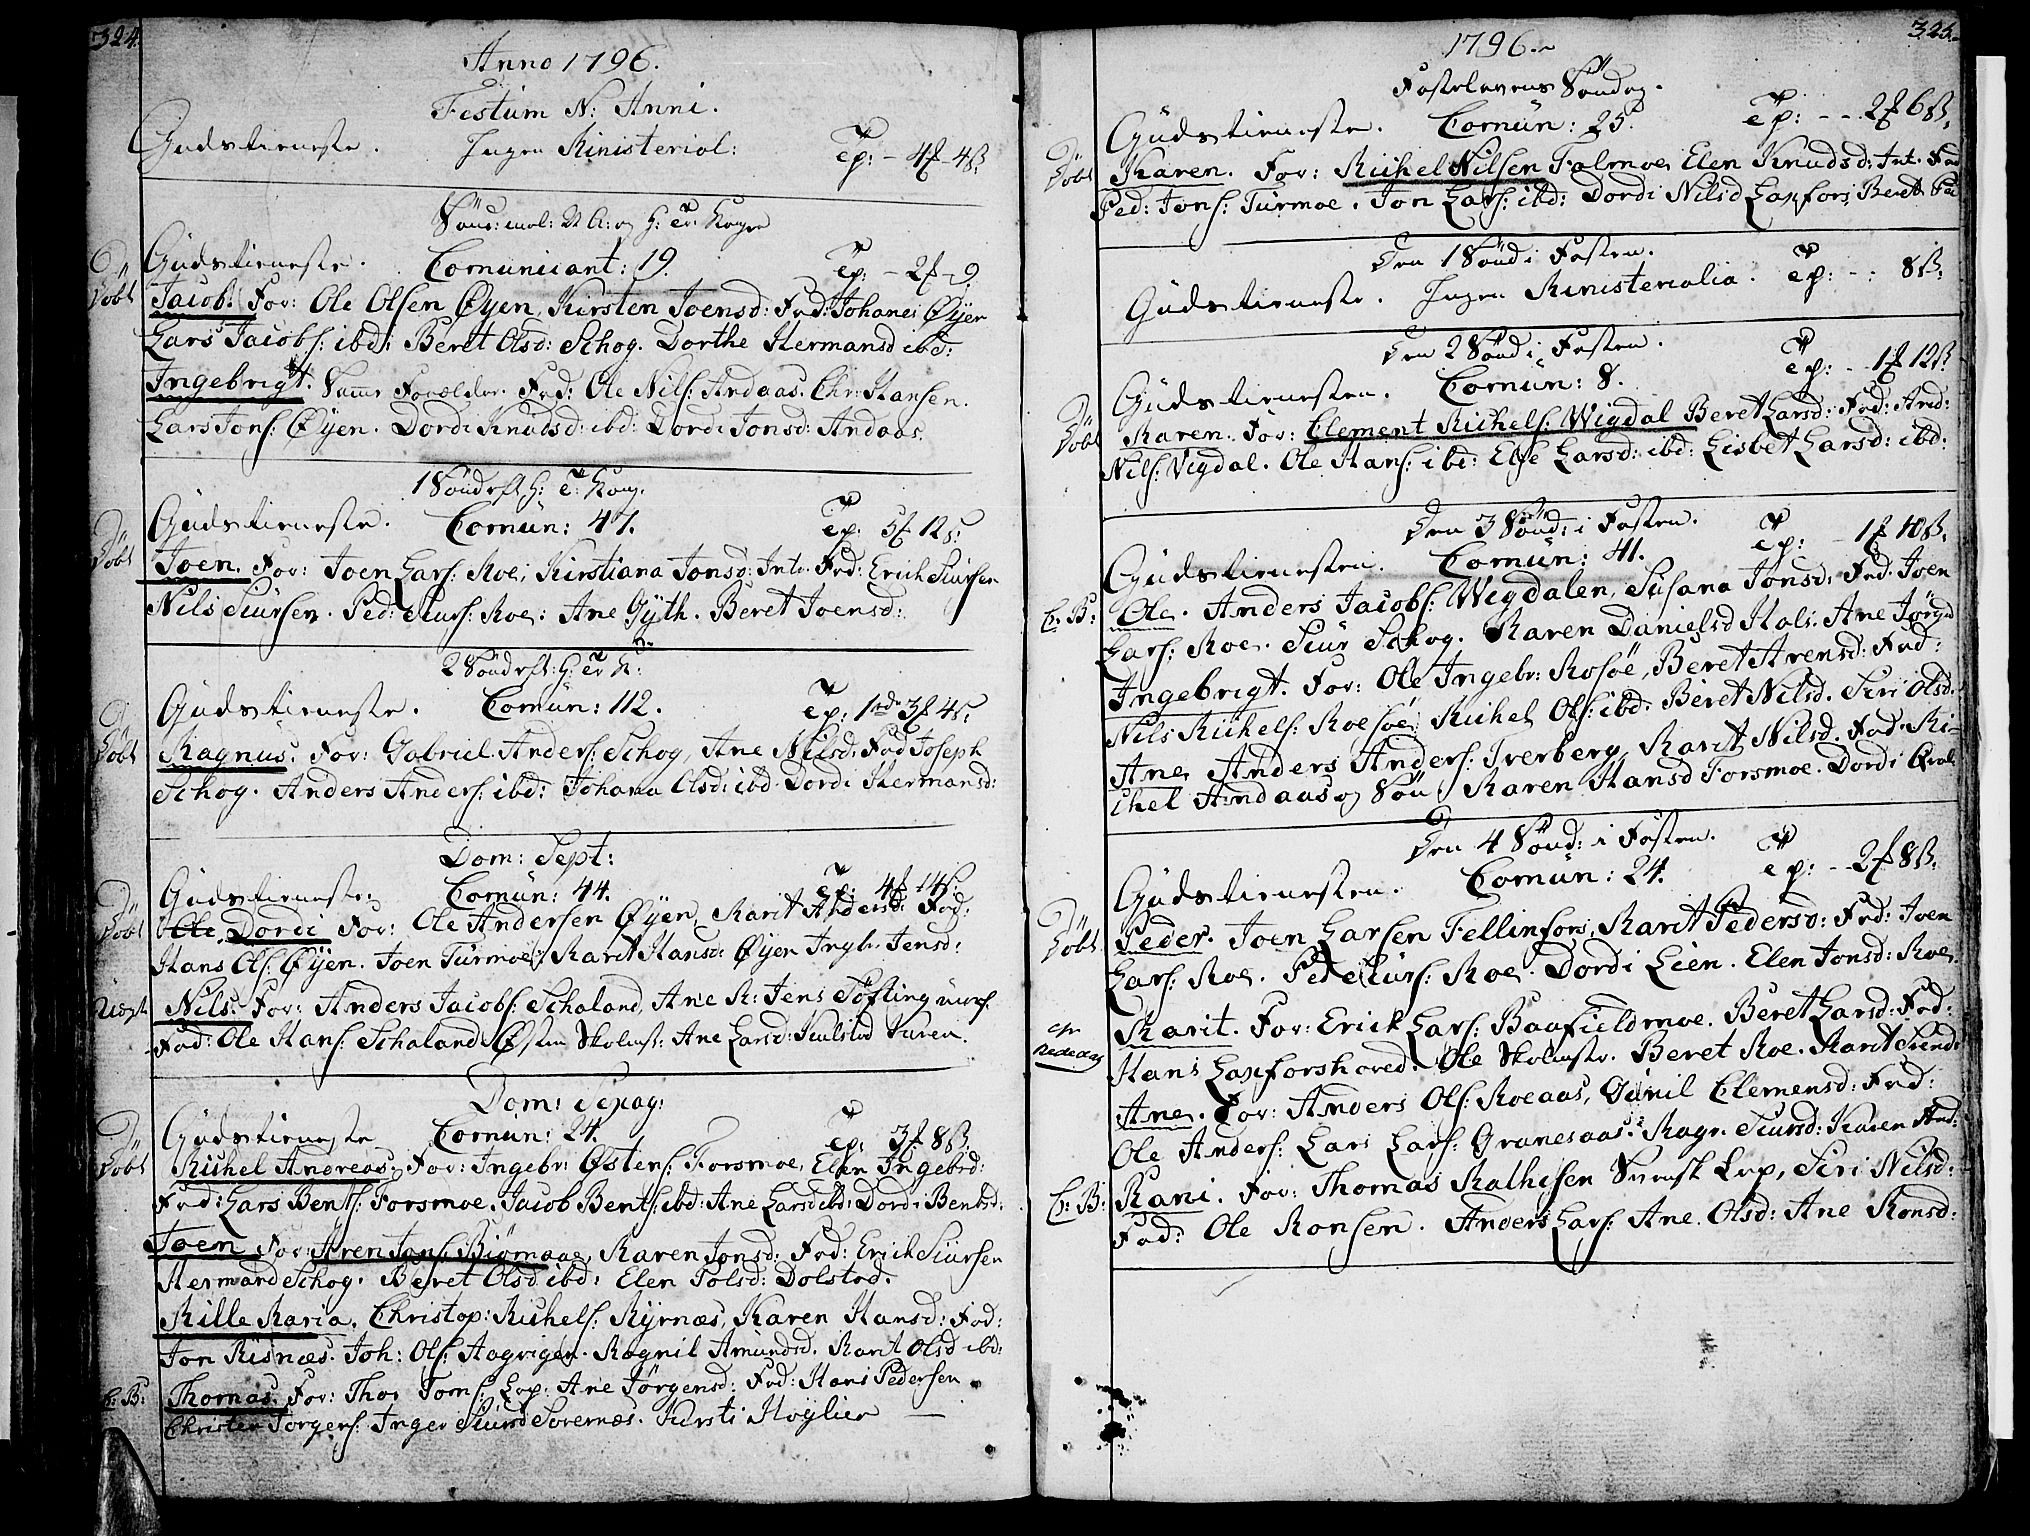 324.
Anno 1796.
Festum N: Anni.
Gudstieneste. Ingen Ministerial: Tp: - 4f - 4ß.
Sönd: mel: N A: og H: Tr: Konger
Gudstieneste. Comunicant: 19. Tp: - 2f - 9
Döbt Jacob. For: Ole Olsen Øyen, Kirsten Joensd: Fad: Johanes Øyen
Lars Jacobs: ibd: Beret Olsd: Schog. Dorthe Hermansd ibd:
Ingebrigt. Samme Forældre. Fad: Ole Nils: Andaas. Chr: Hansen.
Lars Jons: Øyen. Dordi Knudsd: ibd: Dordi Jonsd: Andaas.
1 Sönd eft H: Tr: Kong.
Gudstieneste. Comun: 47. Tp: 5f 12ß.
Döbt Joen. For: Joen Lars: Moe, Kirstiana Jonsd: Intr. Fad: Erich Siursen
Nils Siursen. Ped: Siurs: Moe: Ane Gyth. Beret Joensd:
2 Sönd eft: H: Tr K:
Gudstieneste. Comun: 112. Tp: 1rd 3f 4ß.
Döbt Magnus. For: Gabriel Anders: Schog, Ane Nilsd: Fad Joseph
Schog. Anders Anders: ibd: Johana Olsd: ibd. Dordi Hermansd:
Dom: Sept:
Gudstieneste: Comun: 44. Tp: 4f 14ß.
Döbt Ole, Dordi For: Ole Andersen Øyen, Marit Andersd: Fad:
Hans Ols: Øyen. Joen Turmoe, Marit Hansd: Øyen Ingbr. Jensd:
Uægte Nils. For: Anders Jacobs: Schaland, Ane M: Jens Søfting
Fad: Ole Hans: Schaland Østen Skolmst: Ane Larsd: Kulstad Kuren.
Dom: Sexag:
Gudstieneste Comun: 24. Tp: 3f 8ß.
Döbt Michel Andreas. For: Ingebr: Østens: Forsmoe, Elen Ingebrd:
Fad: Lars Bents: Forsmoe. Jacob Bents: ibd: Ane Larsd ibd: Dordi Bentsd:
Joen For: Aren Jons: Biørnaae, Karen Jonsd: Fad: Erich Siursen
Hermand Schog. Beret Olsd ibd: Elen Tolsd: Dolstad.
Mille Maria. Christop: Michels: Myrnæs, Karen Hansd: Fad:
Jon Risnæs. Joh: Ols: Aagvigen. Ragnil Amundsd. Marit Olsd ibd:
C: B: Thomas. For: Thor Toms: Lap: Ane Jörgensd: Fad: Hans Pedersen
Christen Jorgens: Inger Siursd Sorernæs. Kirsti Høylier
325.
1796.
Fastelavens Söndag.
Gudstieneste. Comun: 25. Tp: - - 2f 6ß.
Döbt Karen. For: Michel Nilsen Talmoe, Elen Knudsd: Int. Fad
Ped: Jons: Turmoe. Jon Lars: ibd: Dordi Nilsd Laxfors, Beret Pe
Den 1 Sönd i Fasten.
Gudstieneste. Ingen Ministerialia. Tp: - : 8ß.
Den 2 Sönd i Fasten.
Gudstienesten. Comun: 8. Tp: - 1f 12ß.
Döbt Maren. For: Clement Michels: Wigdal Beret Larsd: Fad: And:
Nils: Vigdal. Ole Hans: ibd: Else Larsd: ibd: Lisbet Larsd: ibd:
Den 3 Sönd: i Fasten.
Gudstienesten. Comun: 41. Tp: - 1f 10ß.
C: B: Ole. Anders Jacobs: Wigdalen, Susana Jonsd: Fad: Joen
Lars: Moe. Siur Schog. Maren Danielsd Hals. Ane Jörgd
Ingebrigt. For: Ole Ingebr: Mosöe, Beret Arensd: Fad:
Nils Michels: Moesöe, Michel Ols: ibd. Beret Nilsd. Siri Olsd.
Ane, Anders Anders: Tverberg, Marit Nilsd. Fad: Mi-
chel Andaas og Søn Maren Hansd Forsmoe. Dordi
Den 4 Sönd: i Fasten.
Gudstienesten. Comun: 24. Tp: - 2f 8ß.
Döbt. Peder. Joen Larsen Fellinfors, Marit Pedersd: Fad: Joen
Lars: Moe. Pet Siurs: Moe. Dordi Lien. Elen Jonsd: Moe.
Marit. For: Erick Lars: Baafieldmoe. Beret Larsd: Fad:
Hans Laxforshoved. Ole Skolmstr. Beret Moe. Marit Siursd:
Ane. For: Anders Ols: Moeaas, Gunil Clemensd: Fad:
Ole Anders: Lars Lars: Granesaas. Magr. Siursd: Karen And:
C: B: Mari. For: Thomas Mathisen Svensk Lap, Siri Nilsd:
Fad: Ole Monsen. Anders Lars: Ane Olsd: Ane Monsd: